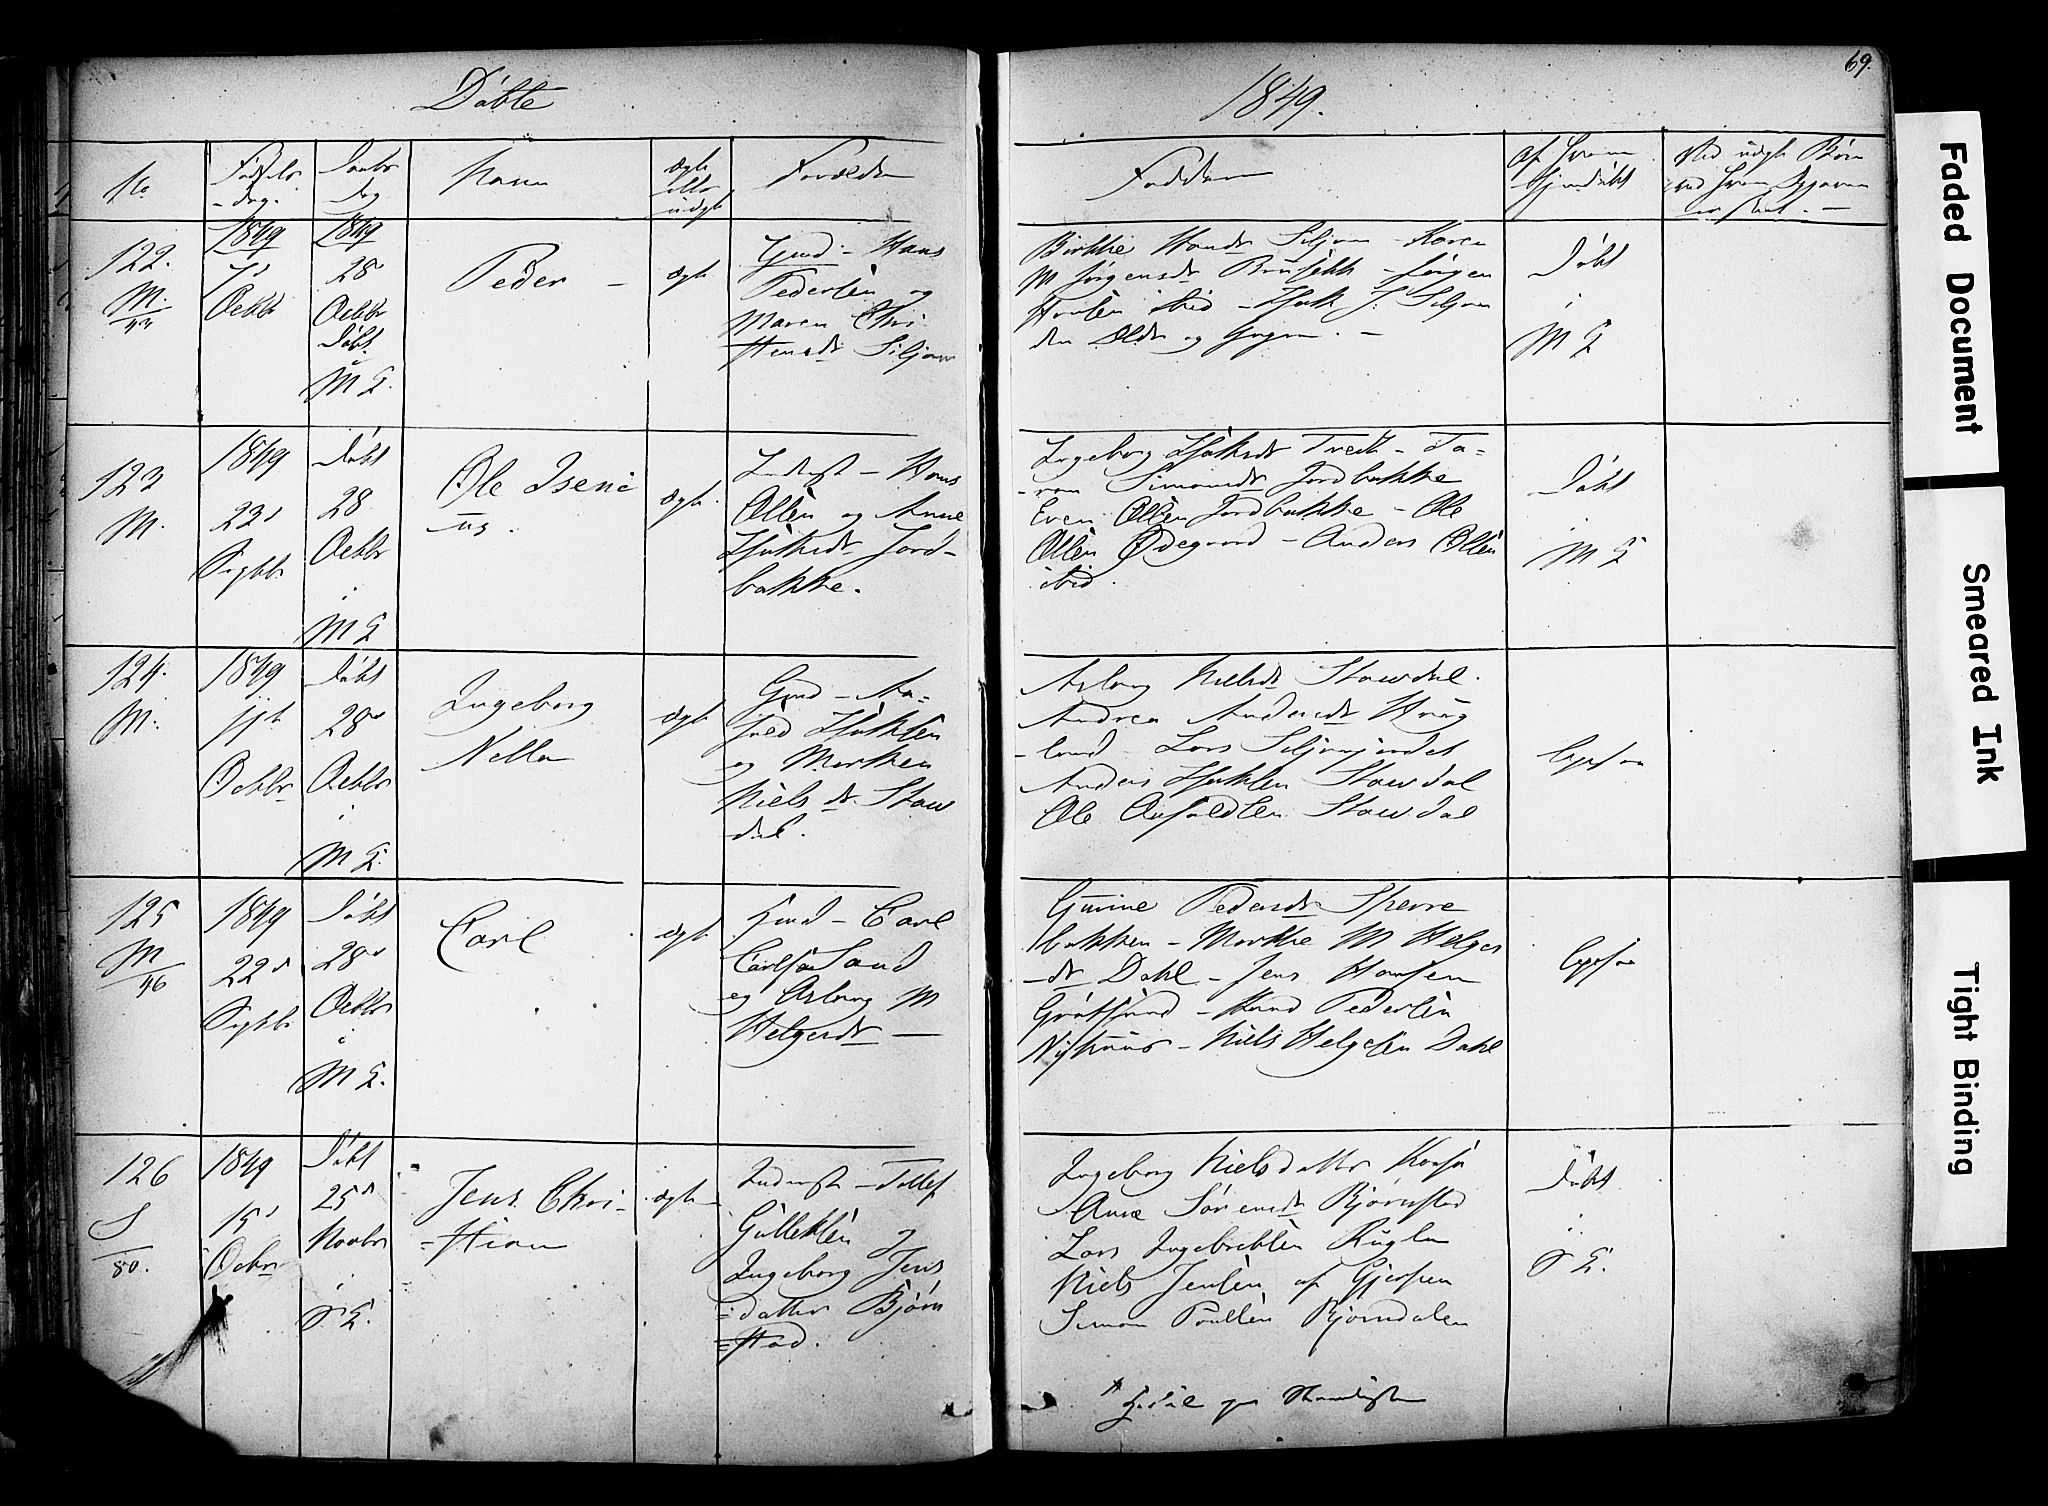 Døbte
1849.
69.
No
Fødsels
-dag.
Daabs
Dag
Navn
ægte
eller
uægte
Forældre
Faddere
af hvem
hjemdøbt
122.
M.
1849
7d
Octbr
1849
28
Octbr
Døbt
i
M E.
Peder –
ægte
Gmd – Hans
Pedersen og
Maren Chri
stensdr Siljan
Birthe Hansdr Siljan – Karen
M Jørgensdr – Jørgen
ibid – Isak J. Siljan
og
Døbt
i
M E
123
M.
1849
23d
Septbr
Døbt
28
Octbr
i
M E
Ole Iseni
us.
ægte
Inderst – Hans
Olsen og Anne
Isaksdr Jord-
bakke.
Ingeborg Isaksdr Tvedt – Ta-
ran Simonsdr Jordbakke
Even Olsen Jordbakke – Ole
Olsen Ødegaard – Anders Olsen
ibid.
Døbt
i
M E
124.
M.
1849
Octbr
Døbt
28d
Octbr
i
M E.
Ingeborg
Nella
ægte
Gmd – An-
Isaksen
og Marthen
Niels dr Stavdal.
Aslaug Nielsdr Stavdal.
Andrea Andersdr Haug
land – Lars Siljanjordet
Anders Isaksen Stavdal
Ole Stavdal
125
M
96
1849
22d
Septbr
Døbt
28d
Octbr
i
M E.
Carl
ægte
Gmd – Carl
Carlsen Sand
og Aslaug M
Helgesdr –
Gunne Pedersdr Sperre
bakken – Marthe M Helges
-dr Dahl – Jens Hansen
– Knud Pedersen
Nyhuus – Niels Helgesen Dahl
126
S
80.
1849
15d
Octbr
Døbt
25d
Novbr
i
S E.
Jens Chri-
=stian
ægte
Inderst – Tollef
Gulleksen og
Ingeborg Jens
=datter Bjørn
=stad.
Ingeborg Nielsdatter Kaasa
Anne Sørensdr Bjørnstad
Lars Ingebretsen Rugla
Niels Jensen af Gjerpen
Simon Poulsen Bjørndalen
Døbt
i
S E.
Faded Document
Smeared Ink
Tight Binding